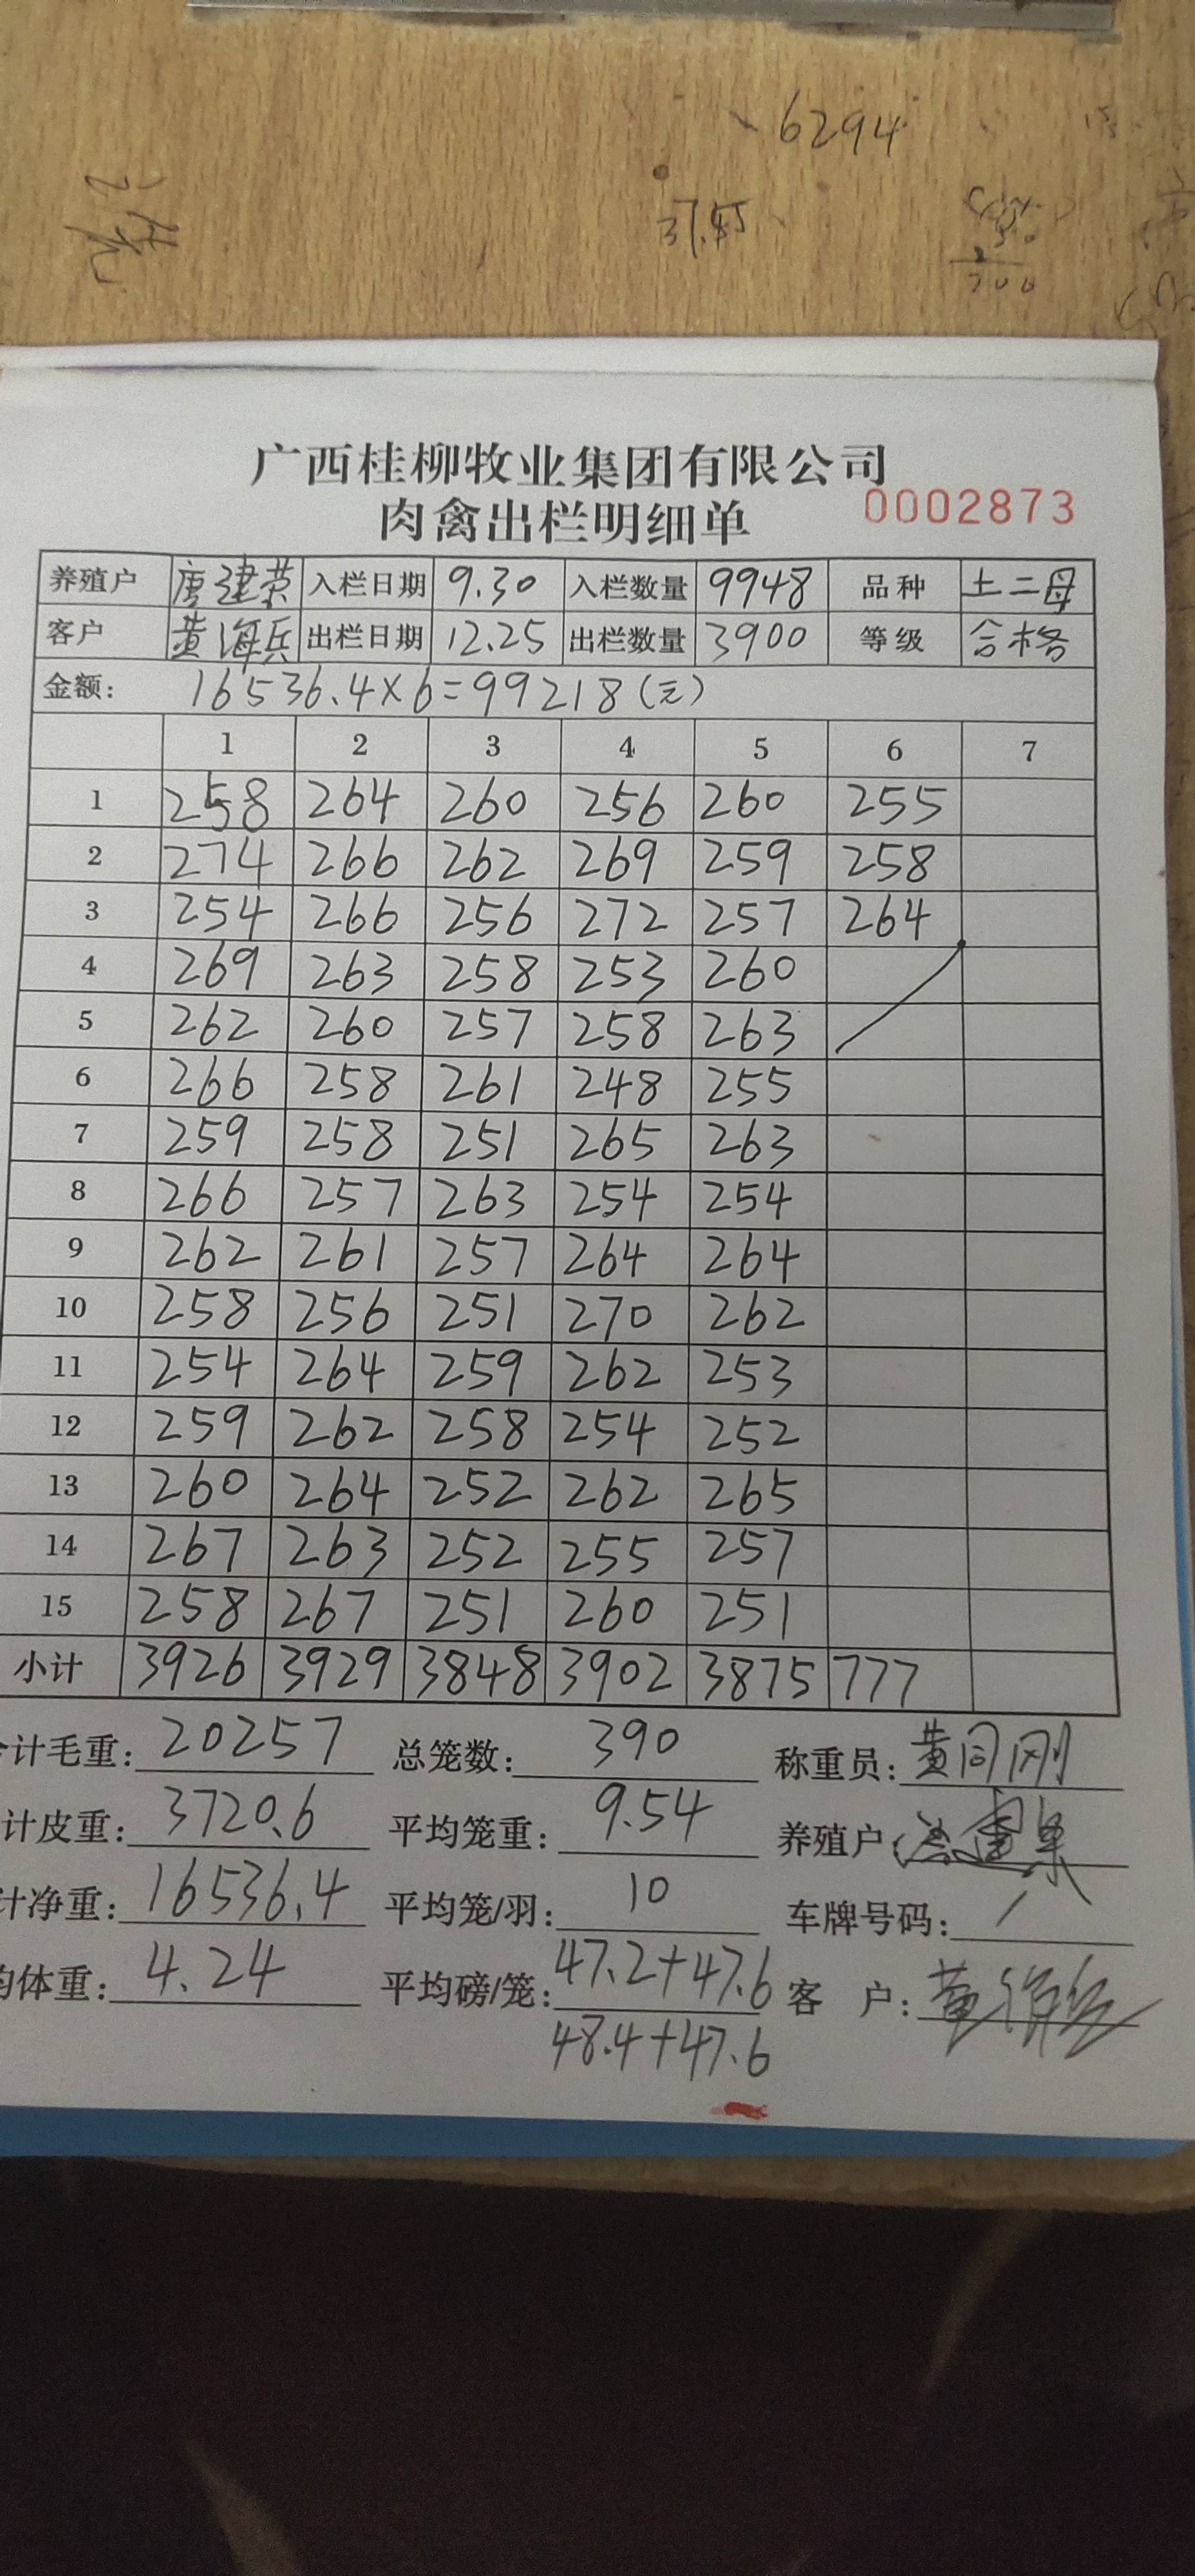 6294
37.45
200
广西桂柳牧业集团有限公司
肉禽出栏明细单 0002873
养殖户 唐建荣 入栏日期 9.30 入栏数量 9948 品种 土二母
客户 黄海兵 出栏日期 12.25 出栏数量 3900 等级 合格
金额: 16536.4×6=99218(元)
1 2 3 4 5 6 7
1 258 264 260 256 260 255
2 274 266 262 269 259 258
3 254 266 256 272 257 264
4 269 263 258 253 260
5 262 260 257 258 263
6 266 258 261 248 255
7 259 258 251 265 263
8 266 257 263 254 254
9 262 261 257 264 264
10 258 256 251 270 262
11 254 264 259 262 253
12 259 262 258 254 252
13 260 264 252 262 265
14 267 263 252 255 257
15 258 267 251 260 251
小计 3926 3929 3848 3902 3875 777
计毛重: 20257 总笼数: 390 称重员: 黄同刚
计皮重: 3720.6 平均笼重: 9.54 养殖户
计净重: 16536.4 平均笼/羽: 10 车牌号码: /
均体重: 4.24 平均磅/笼: 47.2+47.6 客 户:
48.4+47.6